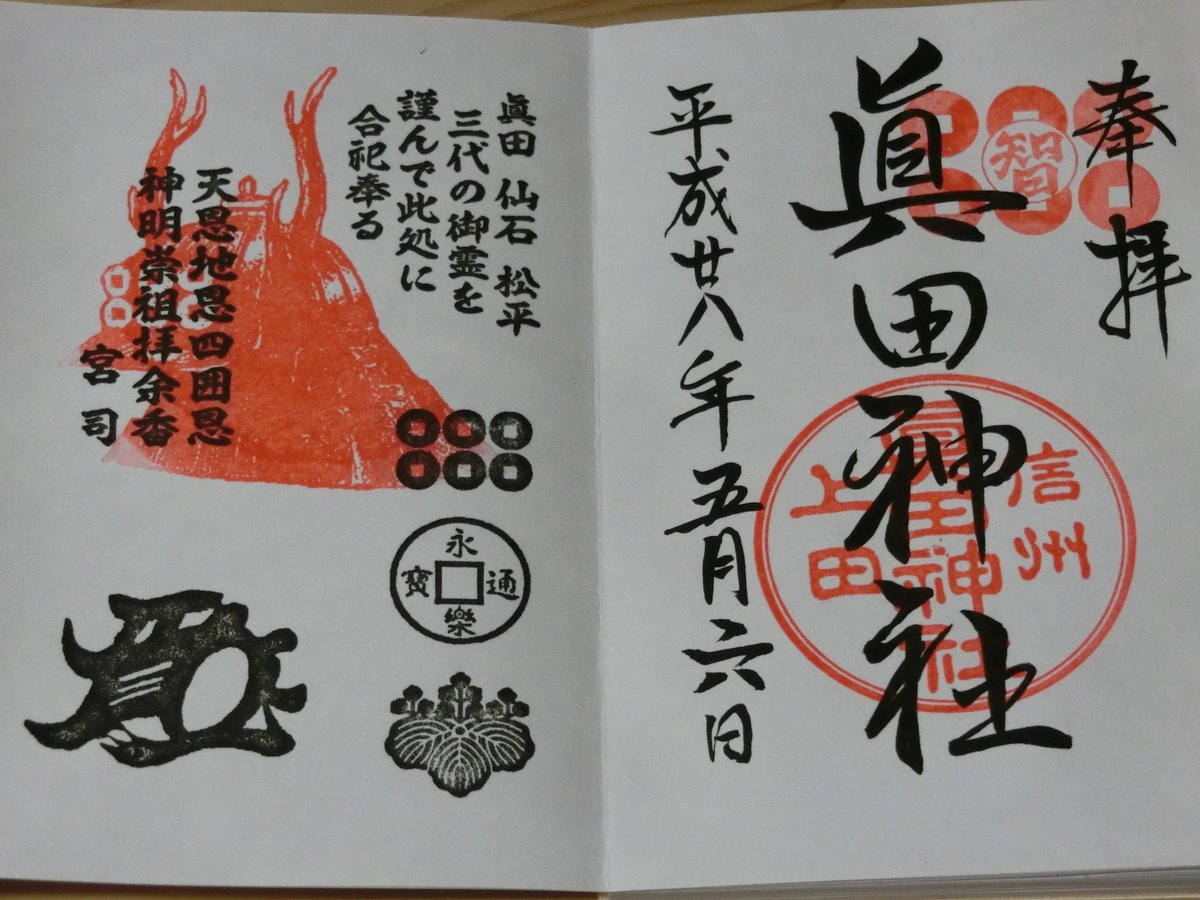 奉拝
智
眞田神社
信州
眞田神社
上田
平成廿八年五月六日
眞田 仙石 松平
三代の御霊を
謹んで此処に
合祀奉る
天恩地恩四囲恩
神明崇祖拝余香
宮司
永樂通寳